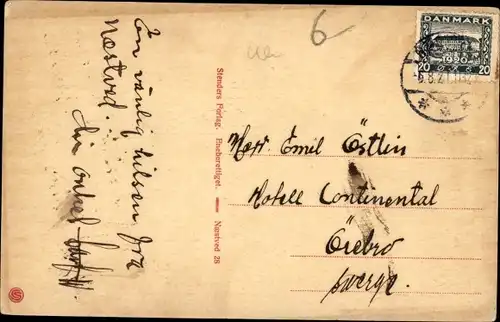 6
DANMARK
1920
20 20
En vänlig hilsen fra
Næstved.
din onkel
Stenders Forlag. Eneberettiget. — Næstved 28
Emil Östlin
Hotell Continental
Örebro
Sverge.
S